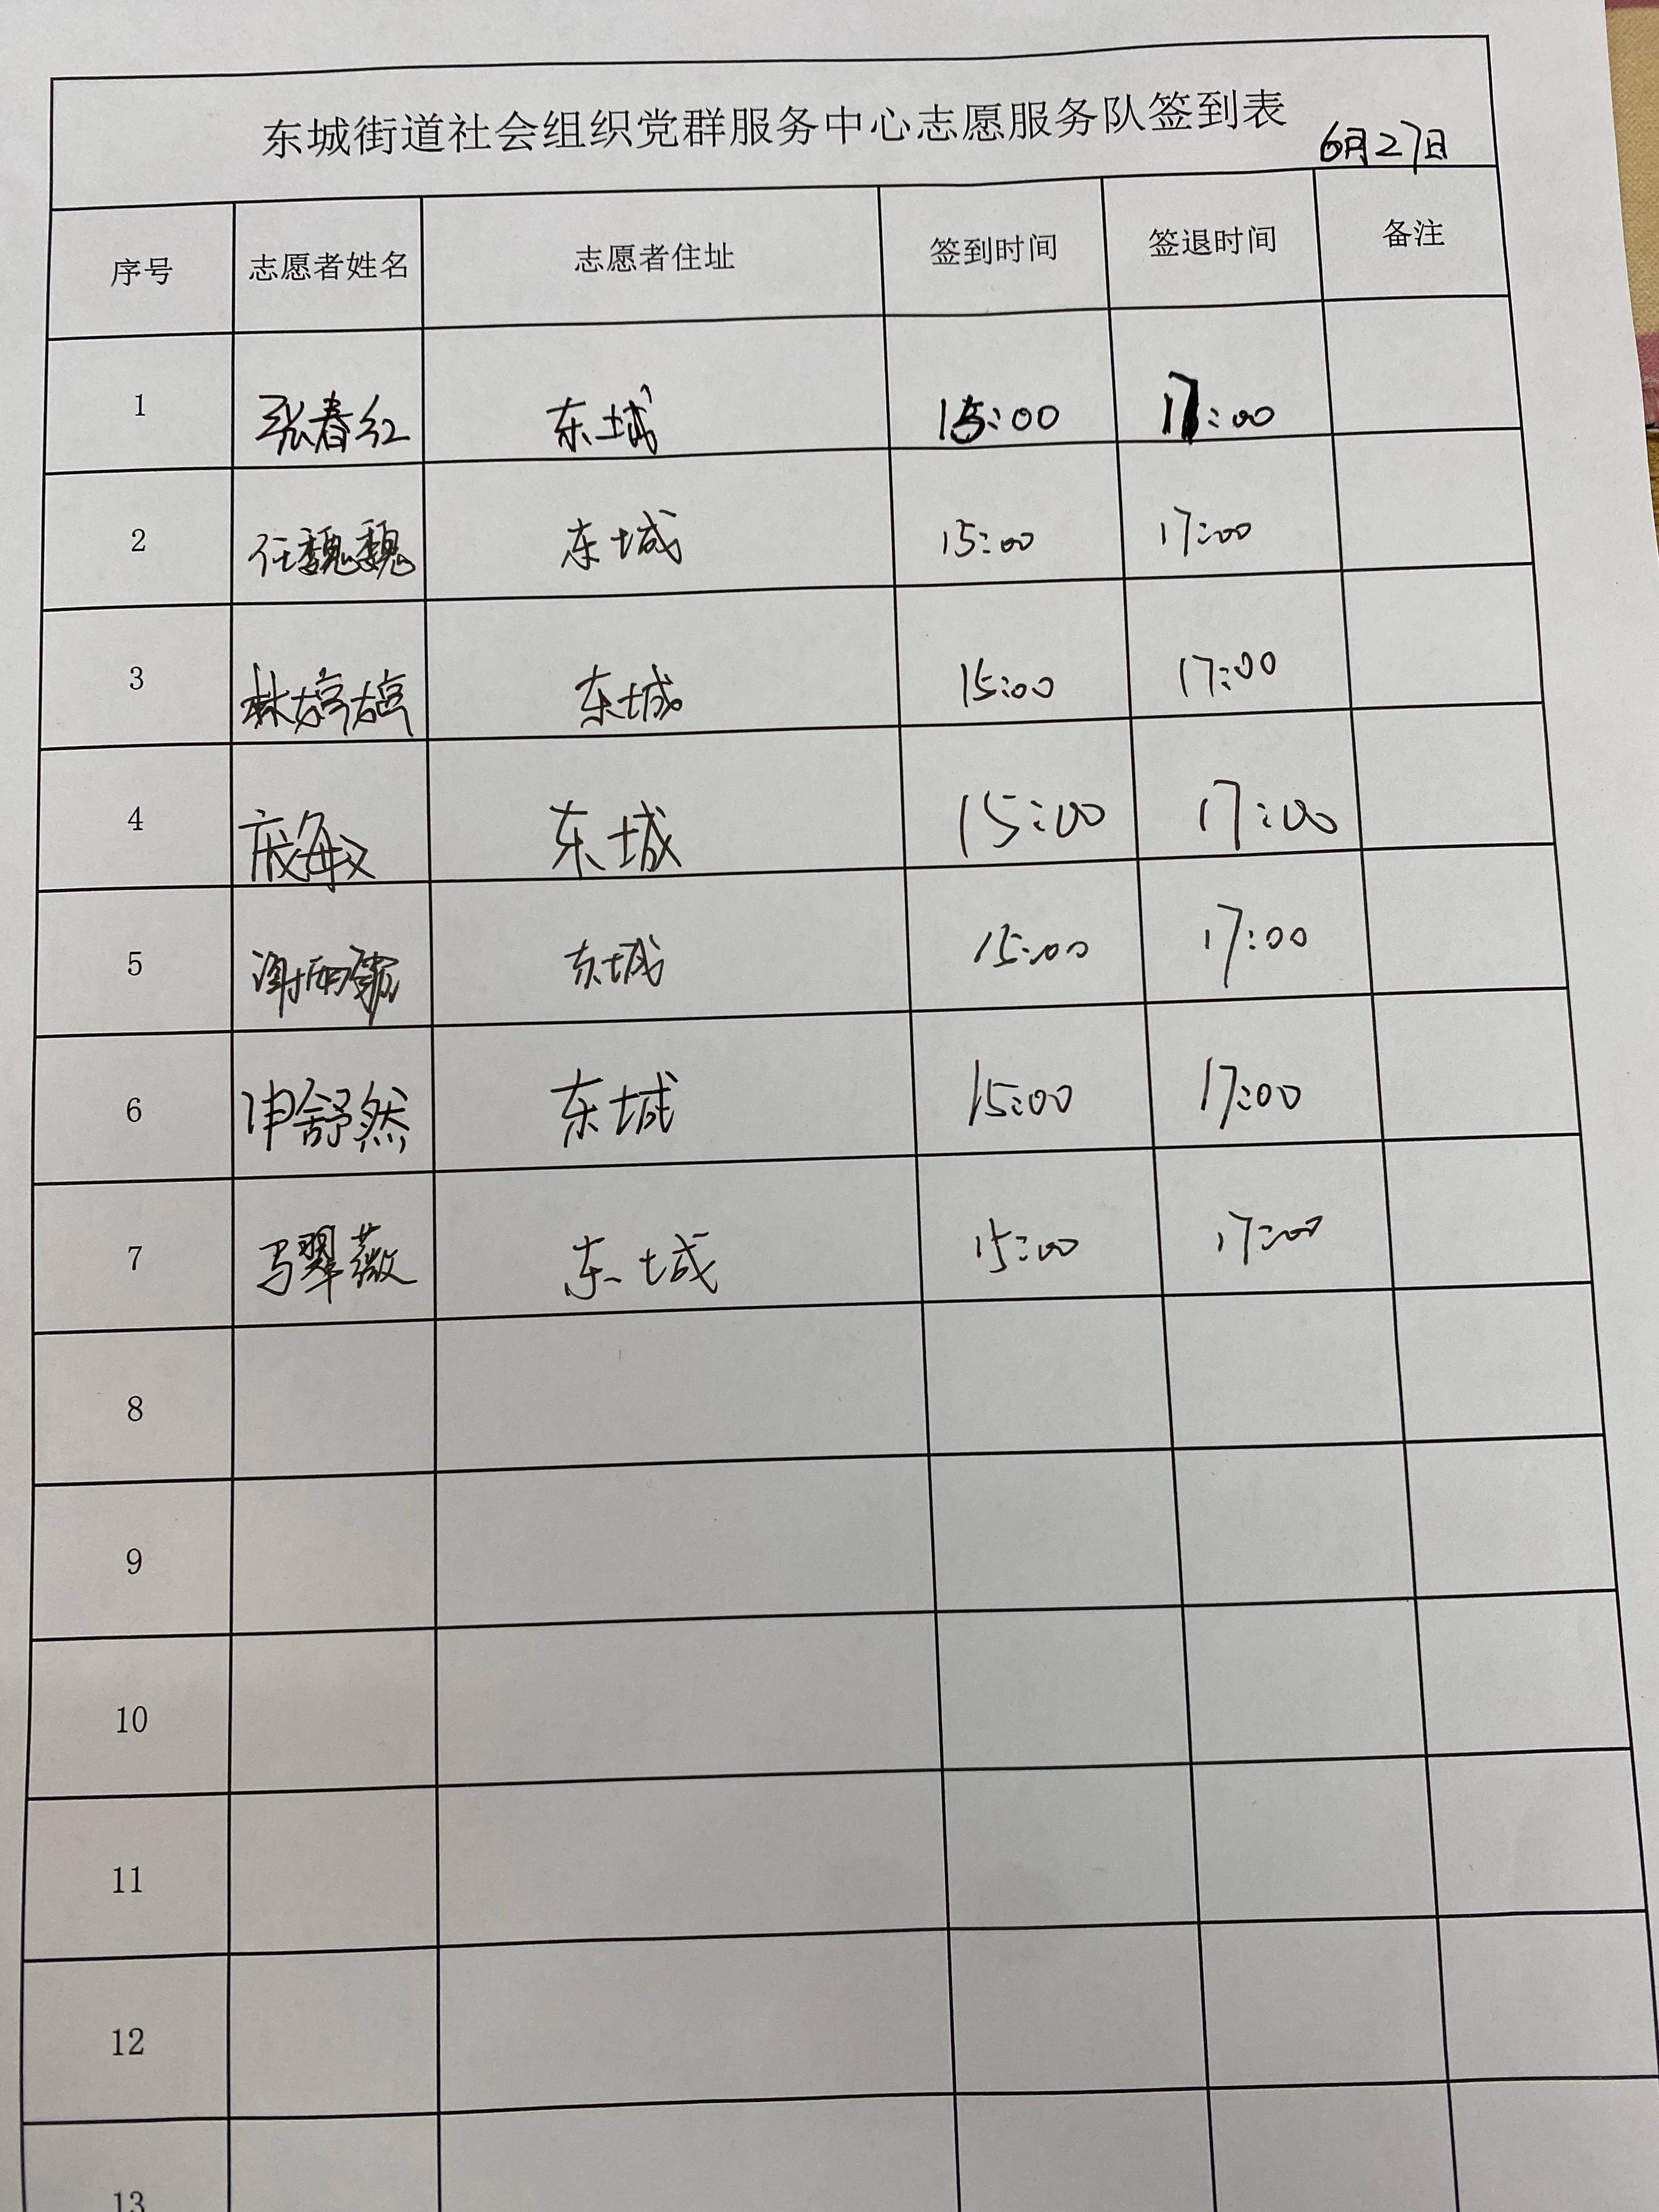 东城街道社会组织党群服务中心志愿服务队签到表 6月27日
序号 志愿者姓名 志愿者住址 签到时间 签退时间 备注
1 张春红 东城 15:00 17:00
2 任魏魏 东城 15:00 17:00
3 林婷婷 东城 15:00 17:00
4 东城 15:00 17:00
5 谢雨 东城 15:00 17:00
6 申舒然 东城 15:00 17:00
7 马翠薇 东城 15:00 17:00
8
9
10
11
12
13